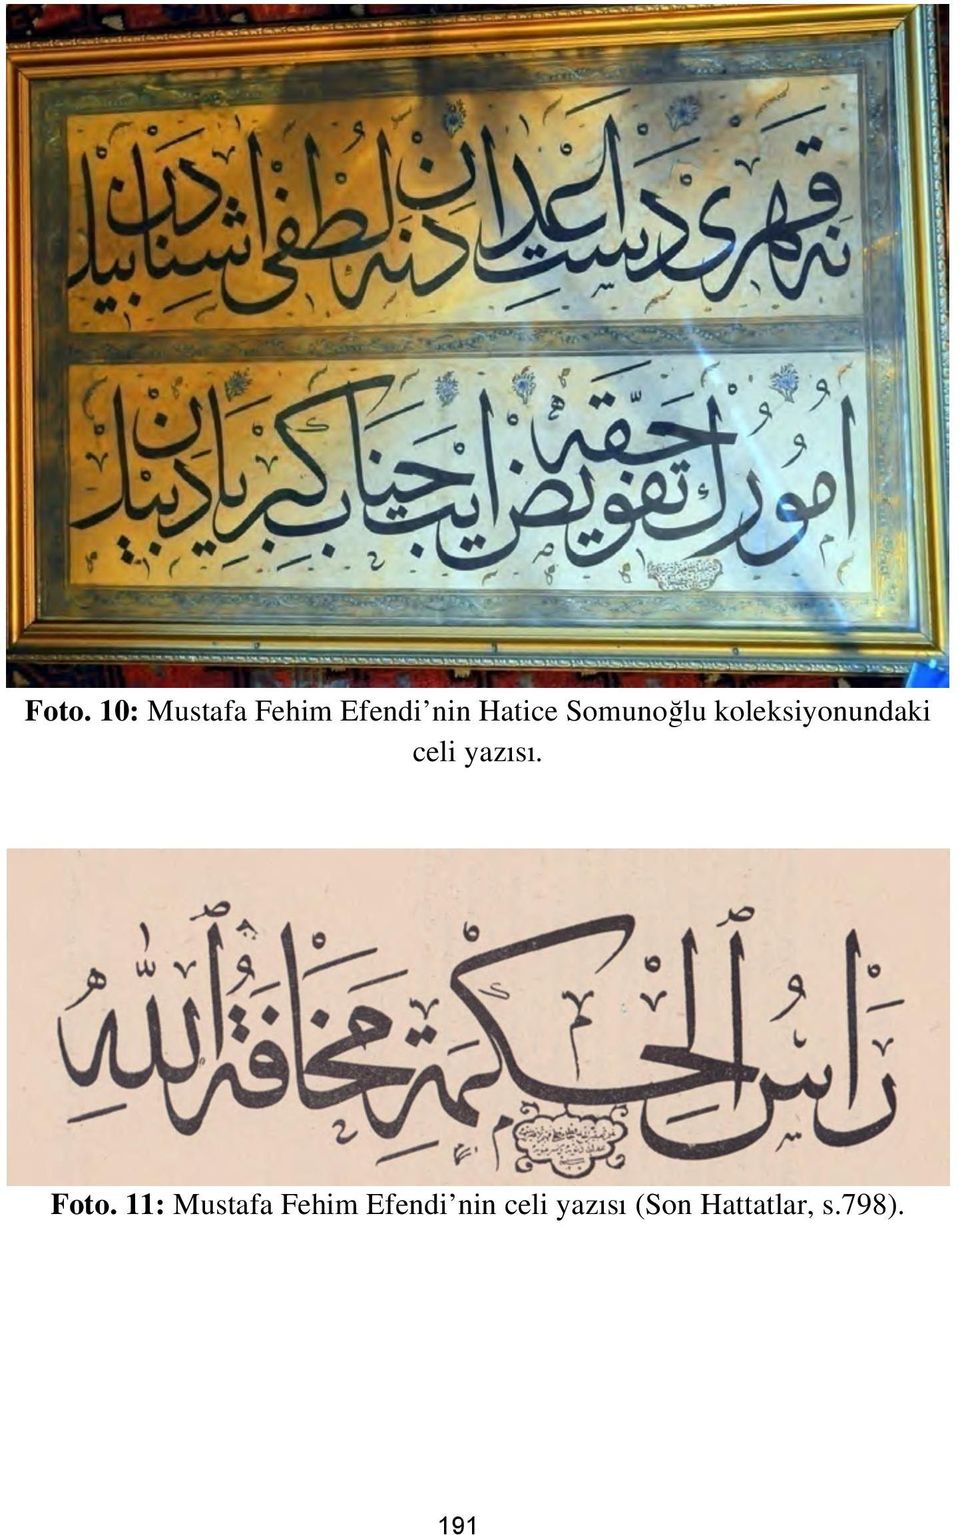 نه قهرى دست اعدادن نه لطفى اشنادن بيل
امورك حقه تفويض ايت جناب كبريادن بيل
Foto. 10: Mustafa Fehim Efendi’nin Hatice Somunoğlu koleksiyonundaki
celi yazısı.
رَأْسُ الْحِكْمَةِ مَخَافَةُ اللّٰهِ
Foto. 11: Mustafa Fehim Efendi’nin celi yazısı (Son Hattatlar, s.798).
191